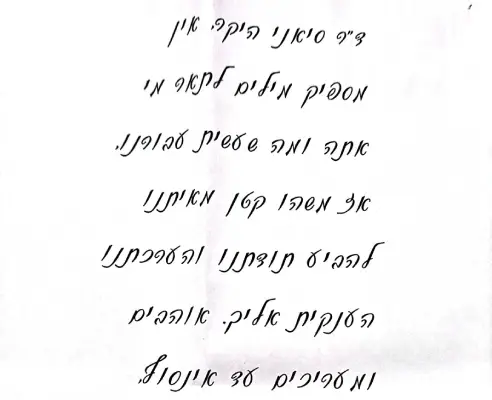 ד״ר סיאני היקר. אין
מספיק מילים לתאר מי
אתה ומה שעשית עבורנו.
אז משהו קטן מאיתנו
להביע תודתנו והערכתנו
הענקית אליך. אוהבים
ומעריכים עד אינסוף.